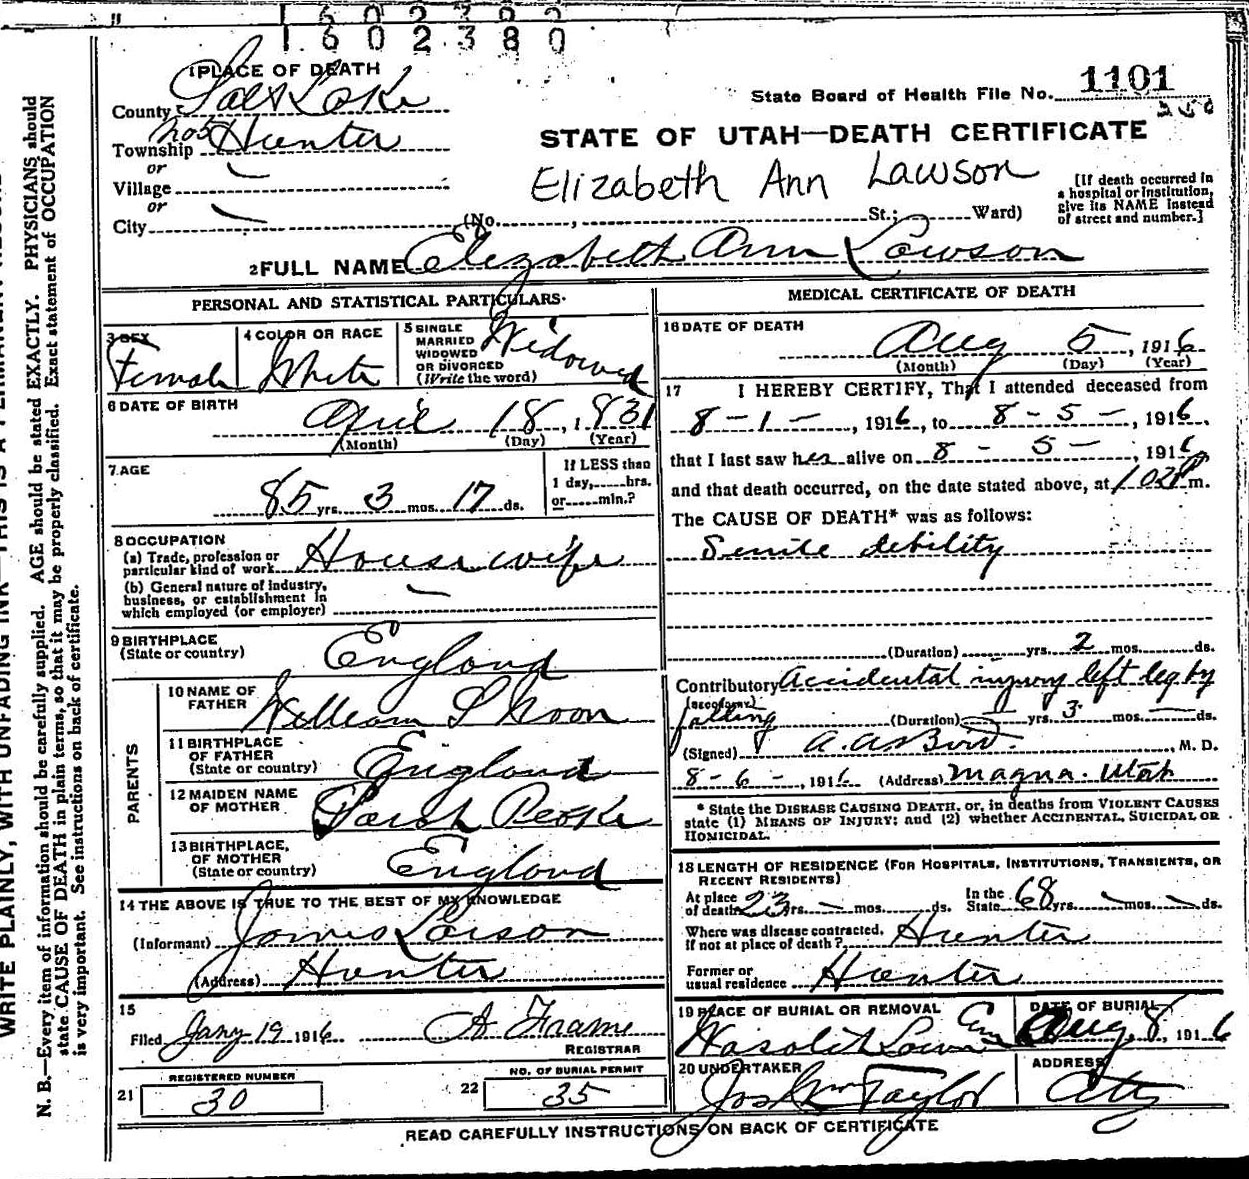 1602380
1 PLACE OF DEATH
County Salt Lake
Township Hunter
or
Village
or
City (No. St.; Ward)
State Board of Health File No. 1101
STATE OF UTAH—DEATH CERTIFICATE
Elizabeth Ann Lawson
[If death occurred in
a hospital or institution,
give its NAME instead
of street and number.]
2 FULL NAME Elizabeth Ann Lawson
PERSONAL AND STATISTICAL PARTICULARS
3 SEX Female
4 COLOR OR RACE White
5 SINGLE
MARRIED
WIDOWED
OR DIVORCED
(Write the word) Widowed
6 DATE OF BIRTH
April 18, 1831
(Month) (Day) (Year)
7. AGE
85 yrs. 3 mos. 17 ds.
If LESS than
1 day, hrs.
or min.?
8 OCCUPATION
(a) Trade, profession or
particular kind of work Housewife
(b) General nature of industry,
business, or establishment in
which employed (or employer)
9 BIRTHPLACE
(State or country) England
PARENTS
10 NAME OF
FATHER William Noon
11 BIRTHPLACE
OF FATHER
(State or country) England
12 MAIDEN NAME
OF MOTHER Sarah
13 BIRTHPLACE,
OF MOTHER
(State or country) England
14 THE ABOVE IS TRUE TO THE BEST OF MY KNOWLEDGE
(Informant) James Lawson
(Address) Hunter
15
Filed Jany 19 1916 A Frame
REGISTRAR
21 REGISTERED NUMBER
30
22 NO. OF BURIAL PERMIT
35
MEDICAL CERTIFICATE OF DEATH
16 DATE OF DEATH
Aug 5, 1916
(Month) (Day) (Year)
17 I HEREBY CERTIFY, That I attended deceased from
8-1-, 1916, to 8-5-, 1916,
that I last saw her alive on 8-5-, 1916
and that death occurred, on the date stated above, at m.
The CAUSE OF DEATH* was as follows:
Senile debility
(Duration) yrs. 2 mos. ds.
Contributory Accidental injury left leg by
(SECONDARY)
falling (Duration) yrs. 3 mos. ds.
(Signed) M. D.
8-6-, 1916 (Address) Magna. Utah
* State the DISEASE CAUSING DEATH, or, in deaths from VIOLENT CAUSES
state (1) MEANS OF INJURY; and (2) whether ACCIDENTAL, SUICIDAL OR
HOMICIDAL.
18 LENGTH OF RESIDENCE (FOR HOSPITALS, INSTITUTIONS, TRANSIENTS, OR
RECENT RESIDENTS)
At place
of death 23 yrs. mos. ds.
In the
State 68 yrs. mos. ds.
Where was disease contracted,
if not at place of death? Hunter
Former or
usual residence Hunter
19 PLACE OF BURIAL OR REMOVAL
DATE OF BURIAL
Aug. 8, 1916
20 UNDERTAKER
Jos Wm Taylor
ADDRESS
City
READ CAREFULLY INSTRUCTIONS ON BACK OF CERTIFICATE
N. B.—Every item of information should be carefully supplied. AGE should be stated EXACTLY. PHYSICIANS should
state CAUSE OF DEATH in plain terms, so that it may be properly classified. Exact statement of OCCUPATION
is very important. See instructions on back of certificate.
WRITE PLAINLY, WITH UNFADING INK—THIS IS A PERMANENT